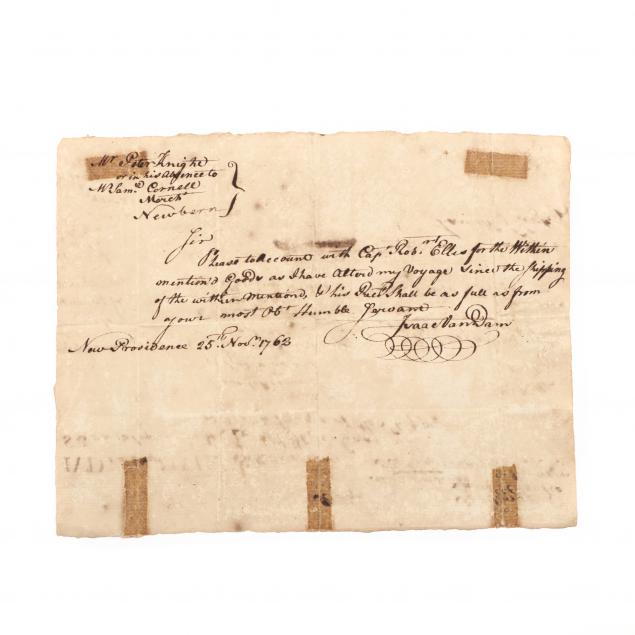 Mr Peter Knight
or in his absence to
Mr Samll Cornell
Mercht
Newbern
Sir
Please to Account with Capt Robert Elles for the Within
mention'd Goods as I have Alterd my Voyage Since the Shipping
of the within Mentiond, & his Rect Shall be as full as from
your most Obt Humble Servant
Isaac Van Dam
New Providence 25th Novr 1763